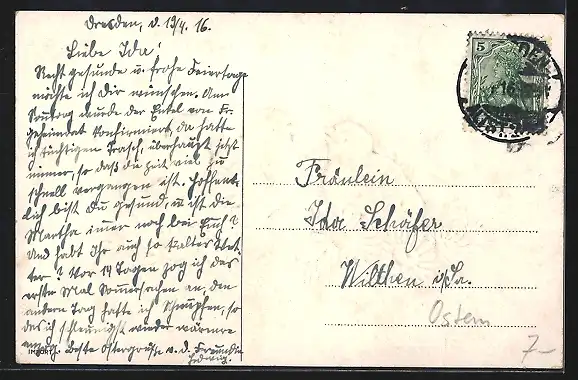 Dresden, d. 19/4. 16.
Liebe Ida!
Recht gesunde u. frohe Feiertage
möchte ich Dir wünschen. Am
Sonntag wurde der Enkel von Fr.
Geheimrat konfirmiert, da hatte
ich tüchtigen Trasch, überhaupt jetzt
immer, so daß die Zeit viel zu
schnell vergangen ist. Hoffent-
lich bist Du gesund, u. ist die
Martha immer noch bei Euch?
Und habt Ihr auch so kaltes Wet-
ter? Vor 14 Tagen zog ich das
erste Mal Sommersachen an, den
andern Tag hatte ich Schnupfen, so
das ich schleunigst wieder wärmere
Beste Ostergrüsse v. d. Freundin
Hedwig.
5
Fräulein
Ida Schäfer
Wilthen i/Sa.
Ostern
7-